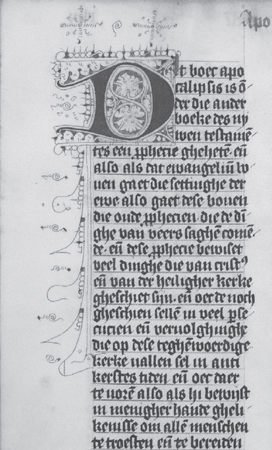 Apo
Dit boec apo
calipsis is oͤ
der die ander
boeke des ny
wen testamē
tes een ꝓphecie gheheten eñ
also als dat ewangeliū bo
uen gaet die settinghe der
ewe also gaet dese bouen
die oude ꝓphecien die dē di
ghe van veers saghen come
de· eñ dese ꝓphecie bewiset
veel dinghe die van cristꝰ
eñ van der heiligher kerke
ghesciet sijn· eñ oec te noch
ghescien sellē in veel ꝑse
cucien eñ veruolghinghe
die op dese teghēwoerdige
kerke vallen sel in anti
kerstes tiden eñ oec daer
te uorē also als hi bewijst
in menigher hande gheli
kenisse om allē menschen
te troesten eñ te bereiten